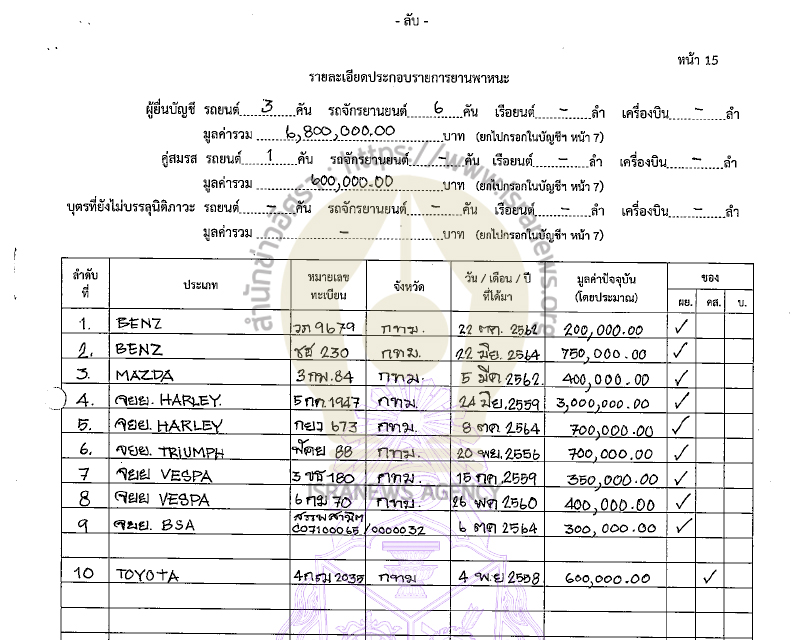 - ลับ -
หน้า 15
รายละเอียดประกอบรายการยานพาหนะ
ผู้ยื่นบัญชี รถยนต์ 3 คัน รถจักรยานยนต์ 6 คัน เรือยนต์ - ลำ เครื่องบิน - ลำ
มูลค่ารวม 6,800,000.00 บาท (ยกไปกรอกในบัญชีฯ หน้า 7)
คู่สมรส รถยนต์ 1 คัน รถจักรยานยนต์ - คัน เรือยนต์ - ลำ เครื่องบิน - ลำ
มูลค่ารวม 600,000.00 บาท (ยกไปกรอกในบัญชีฯ หน้า 7)
บุตรที่ยังไม่บรรลุนิติภาวะ รถยนต์ - คัน รถจักรยานยนต์ - คัน เรือยนต์ - ลำ เครื่องบิน - ลำ
มูลค่ารวม - บาท (ยกไปกรอกในบัญชีฯ หน้า 7)
ลำดับที่ ประเภท หมายเลขทะเบียน จังหวัด วัน / เดือน / ปี ที่ได้มา มูลค่าปัจจุบัน (โดยประมาณ) ของ
ผย. คส. บ.
1. BENZ วภ 9679 กทม. 22 ตค. 2562 200,000.00 ✓
2. BENZ ชช 230 กทม. 22 มิย. 2564 750,000.00 ✓
3. MAZDA 3กพ.84 กทม. 5 มีค 2562 400,000.00 ✓
4. จยย. HARLEY. 5กก 1947 กทม. 24 มิย.2559 3,000,000.00 ✓
5. จยย. HARLEY 673 กทม. 8 ตค 2564 700,000.00 ✓
6. จยย. TRIUMPH 88 กทม. 20 พย.2556 700,000.00 ✓
7 จยย VESPA 3 ขช 180 กทม. 15 กค.2559 350,000.00 ✓
8 จยย VESPA 6 กม 70 กทม. 26 พค 2560 400,000.00 ✓
9 จยย. BSA สรรพสามิต C07100065/0000032 6 ตค 2564 300,000.00 ✓
10 TOYOTA 4กฌ 2035 กทม 4 พ.ย 2558 600,000.00 ✓
สำนักข่าวอิศรา : https://www.isranews.org
ISRANEWS AGENCY